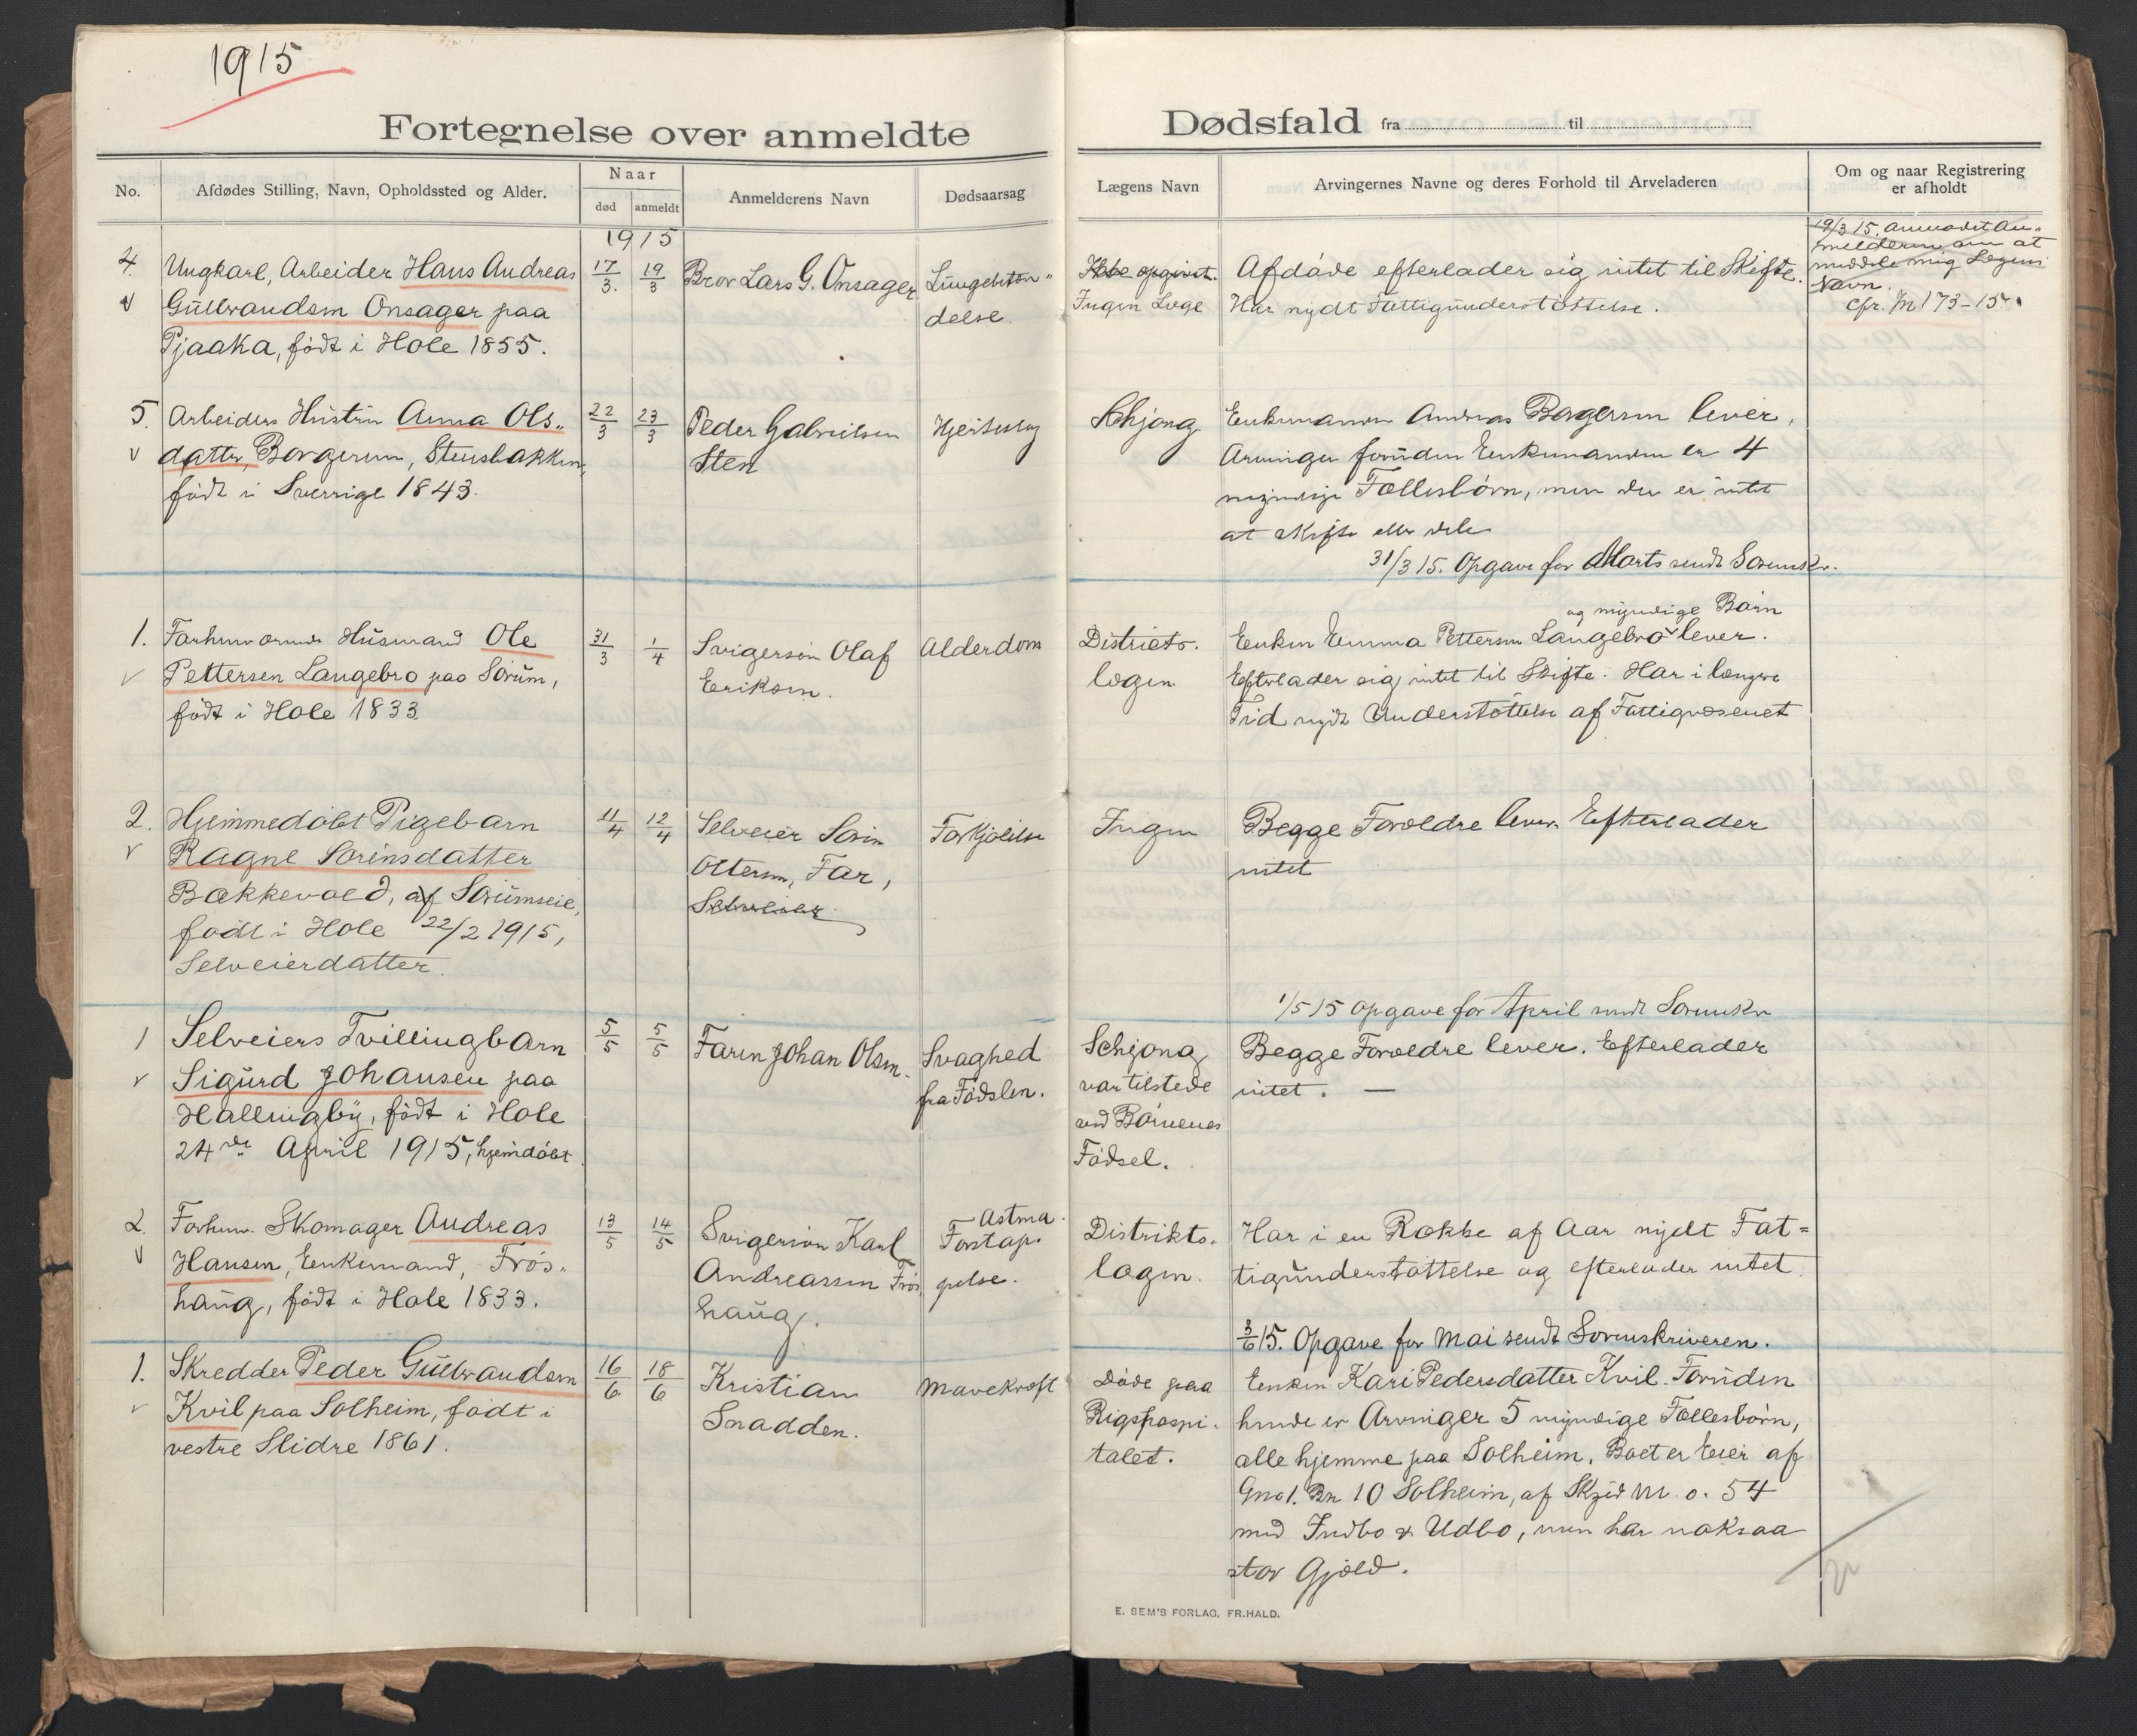 1915
Fortegnelse over anmeldte
Dødsfald fra til
No.
Afdødes Stilling, Navn, Opholdssted og Alder.
Naar
død
anmeldt
Anmelderens Navn
Dødsaarsag
Lægens Navn
Arvingernes Navne og deres Forhold til Arveladeren
Om og naar Registrering
er afholdt
1915
4. Ungkarl, Arbeider Hans Andreas
Gulbrandsen Onsager paa
Pjaaka, født i Hole 1855.
17/3. 19/3
Bror Lars G. Onsager
Lungebetæn"
delse.
Ikke opgivet.
Ingen Læge
Afdøde efterlader sig intet til Skifte.
Har nydt Fattigunderstøttelse.
19/3 15. anmodet An-
melderen om at
meddele mig Lægens
Navn.
cfr. M 173-15.
5. Arbeiders Hustru Anna Ols"
datter, Borgersen, Stensbakken,
født i Sverrige 1843.
22/3 23/3
Peder Gabrielsen
Sten
Hjerteslag
Schjong
Enkemanden Andreas Borgersen lever,
Arvinger foruden Enkemanden er 4
myndige Fællesbørn, men der er intet
at skifte eller dele
31/3 15. Opgave for Marts sendt Sorenskr.
1. Forhenværende Husmand Ole
Pettersen Langebro paa Sørum,
født i Hole 1833
31/3 1/4
Svigersøn Olaf
Eriksen.
Alderdom
Districts.
lægen
og myndige Børn
Enken Emma Pettersen Langebro lever.
Efterlader sig intet til Skifte. Har i længere
Tid nydt Understøttelse af Fattigvæsenet
2. Hjemmedøbt Pigebarn
Ragne Sørinsdatter
Bækkevold, af Sørumseie,
født i Hole 22/2 1915,
Selveierdatter.
11/4 12/4
Selveier Sørin
Ottersen, Far,
Selveier
Forkjølelse
Ingen
Begge Forældre lever. Efterlader
intet
1/5 15 Opgave for April sendt Sorenskr
1 Selveiers Tvillingbarn
Sigurd Johansen paa
Hallingby, født i Hole
24de April 1915, hjemdøbt
5/5 5/5
Faren Johan Olsen.
Svaghed
fra Fødslen.
Schjong
var tilstede
ved Børnenes
Fødsel.
Begge Forældre lever. Efterlader
intet. —
2. Forhenv. Skomager Andreas
Hansen, Enkemand, Frøs"
haug, født i Hole 1833.
13/5 14/5
Svigersøn Karl
Andreassen Frøs
haug.
Astma.
Distrikts.
lægen.
Har i en Række af Aar nydt Fat=
tigunderstøttelse og efterlader intet.
3/6 15. Opgave for Mai sendt Sorenskriveren.
1. Skredder Peder Gulbrandsen
Kvil paa Solheim, født i
vestre Slidre 1861.
16/6 18/6
Kristian
Snadden.
Mavekræft
Døde paa
Rigshospi.
talet.
Enken Kari Pedersdatter Kvil. Foruden
hende er Arvinger 5 myndige Fællesbørn,
alle hjemme paa Solheim. Boet er Eier af
Gno 1. Bn 10 Solheim, af Skyld M. 0.54
med Indbo & Udbo, men har noksaa
stor Gjæld.
E. SEM'S FORLAG, FR.HALD.